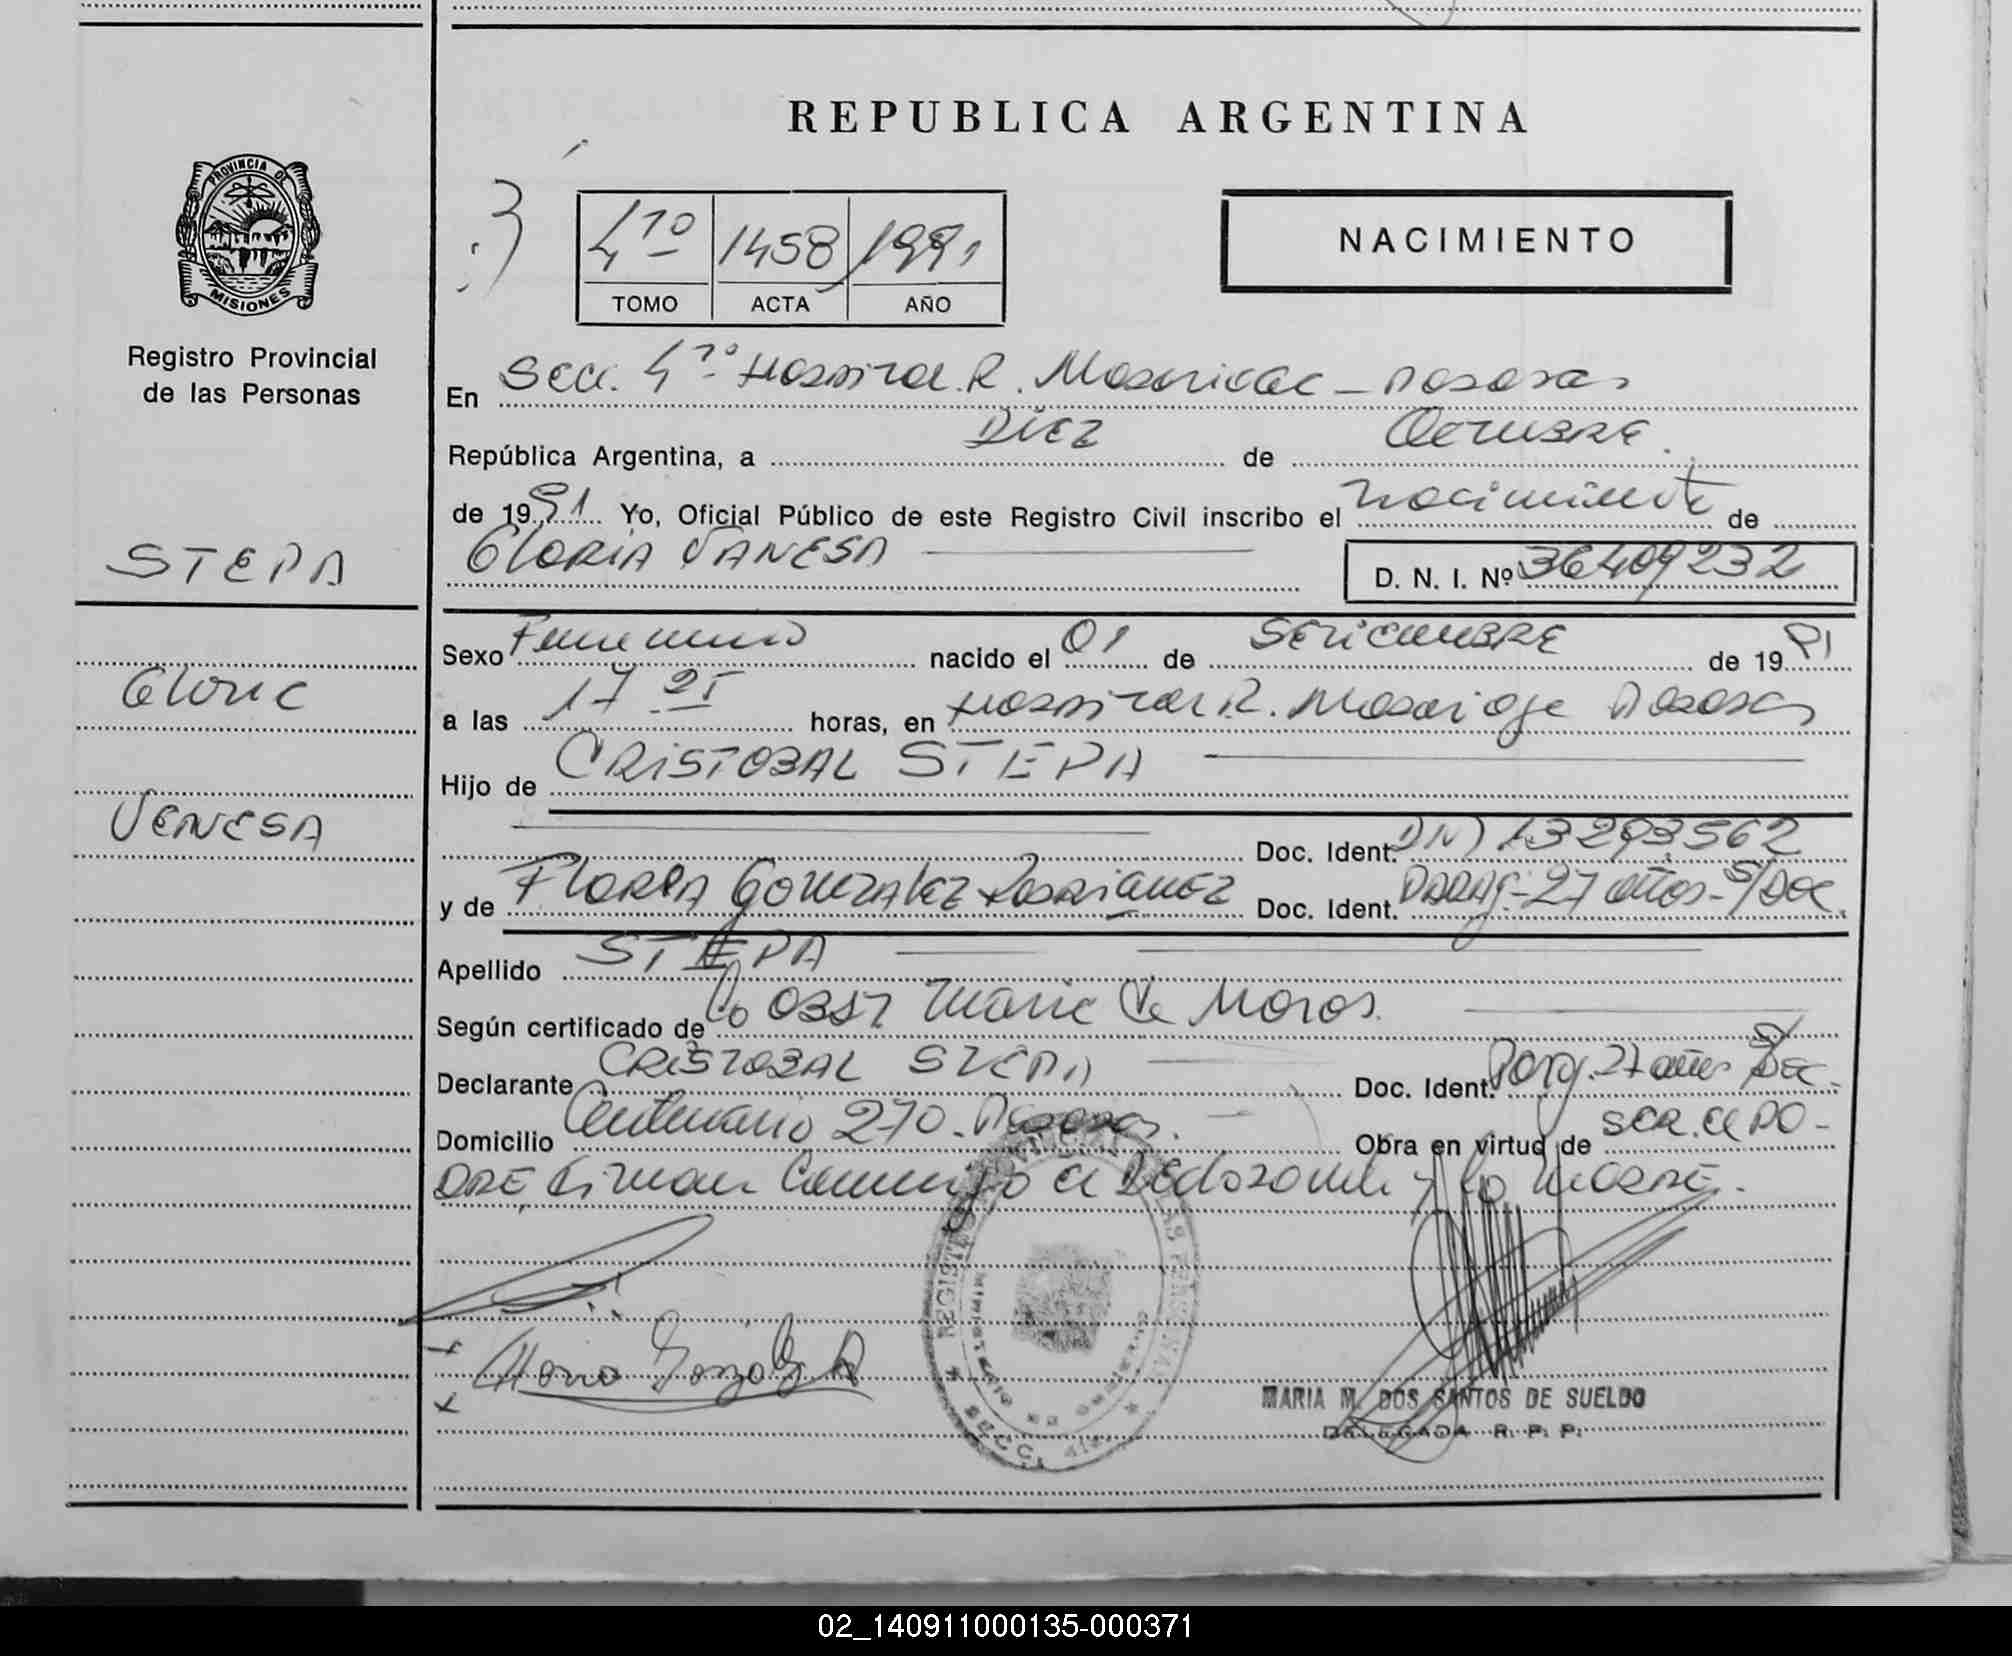 REPUBLICA ARGENTINA
PROVINCIA DE
MISIONES
Registro Provincial
de las Personas
4to 1458 1991
TOMO ACTA AÑO
NACIMIENTO
En Secc. 4to Hospital R. Madariaga - Posadas
República Argentina, a Diez de Octubre
de 1991 Yo, Oficial Público de este Registro Civil inscribo el nacimiento de
GLORIA VANESA D. N. I. Nº 36409232
STEPA
Sexo Femenino nacido el 01 de SETIEMBRE de 1991
Gloria
a las 17 horas, en Hospital R. Madariaga Posadas
Hijo de CRISTOBAL STEPA
VANESA
Doc. Ident. DNI 13293562
y de GONZALEZ RODRIGUEZ Doc. Ident. PARAG. 27 años - S/Doc.
Apellido STEPA
Según certificado de La Obst Maria de
Declarante CRISTOBAL STEPA Doc. Ident. Parg. 27 años S/Doc.
Domicilio Centenario 270 - Posadas. Obra en virtud de SER. el PA-
DRE Firman Conmigo el Declarante y la MADRE.
Gonzalez R
MARIA M. DOS SANTOS DE SUELDO
DELEGADA R. P. P.
02_140911000135-000371